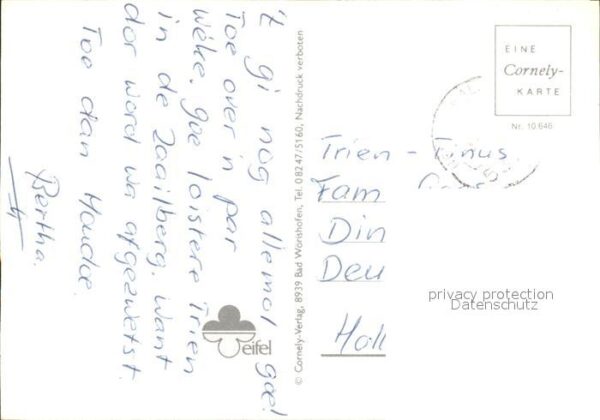 't gi nog allemol goe!
Toe over 'n par
wéke. goe loistere Trien
in de Zaailberg. want
dor word wa afgezwetst.
Toe dan Houdoe.
Bertha.
eifel
© Cornely-Verlag, 8939 Bad Wörishofen, Tel. 08247/5160, Nachdruck verboten
EINE
Cornely-
KARTE
Nr. 10 646
Trien - Tinus
Fam
Din
Deu
Holl
privacy protection
Datenschutz